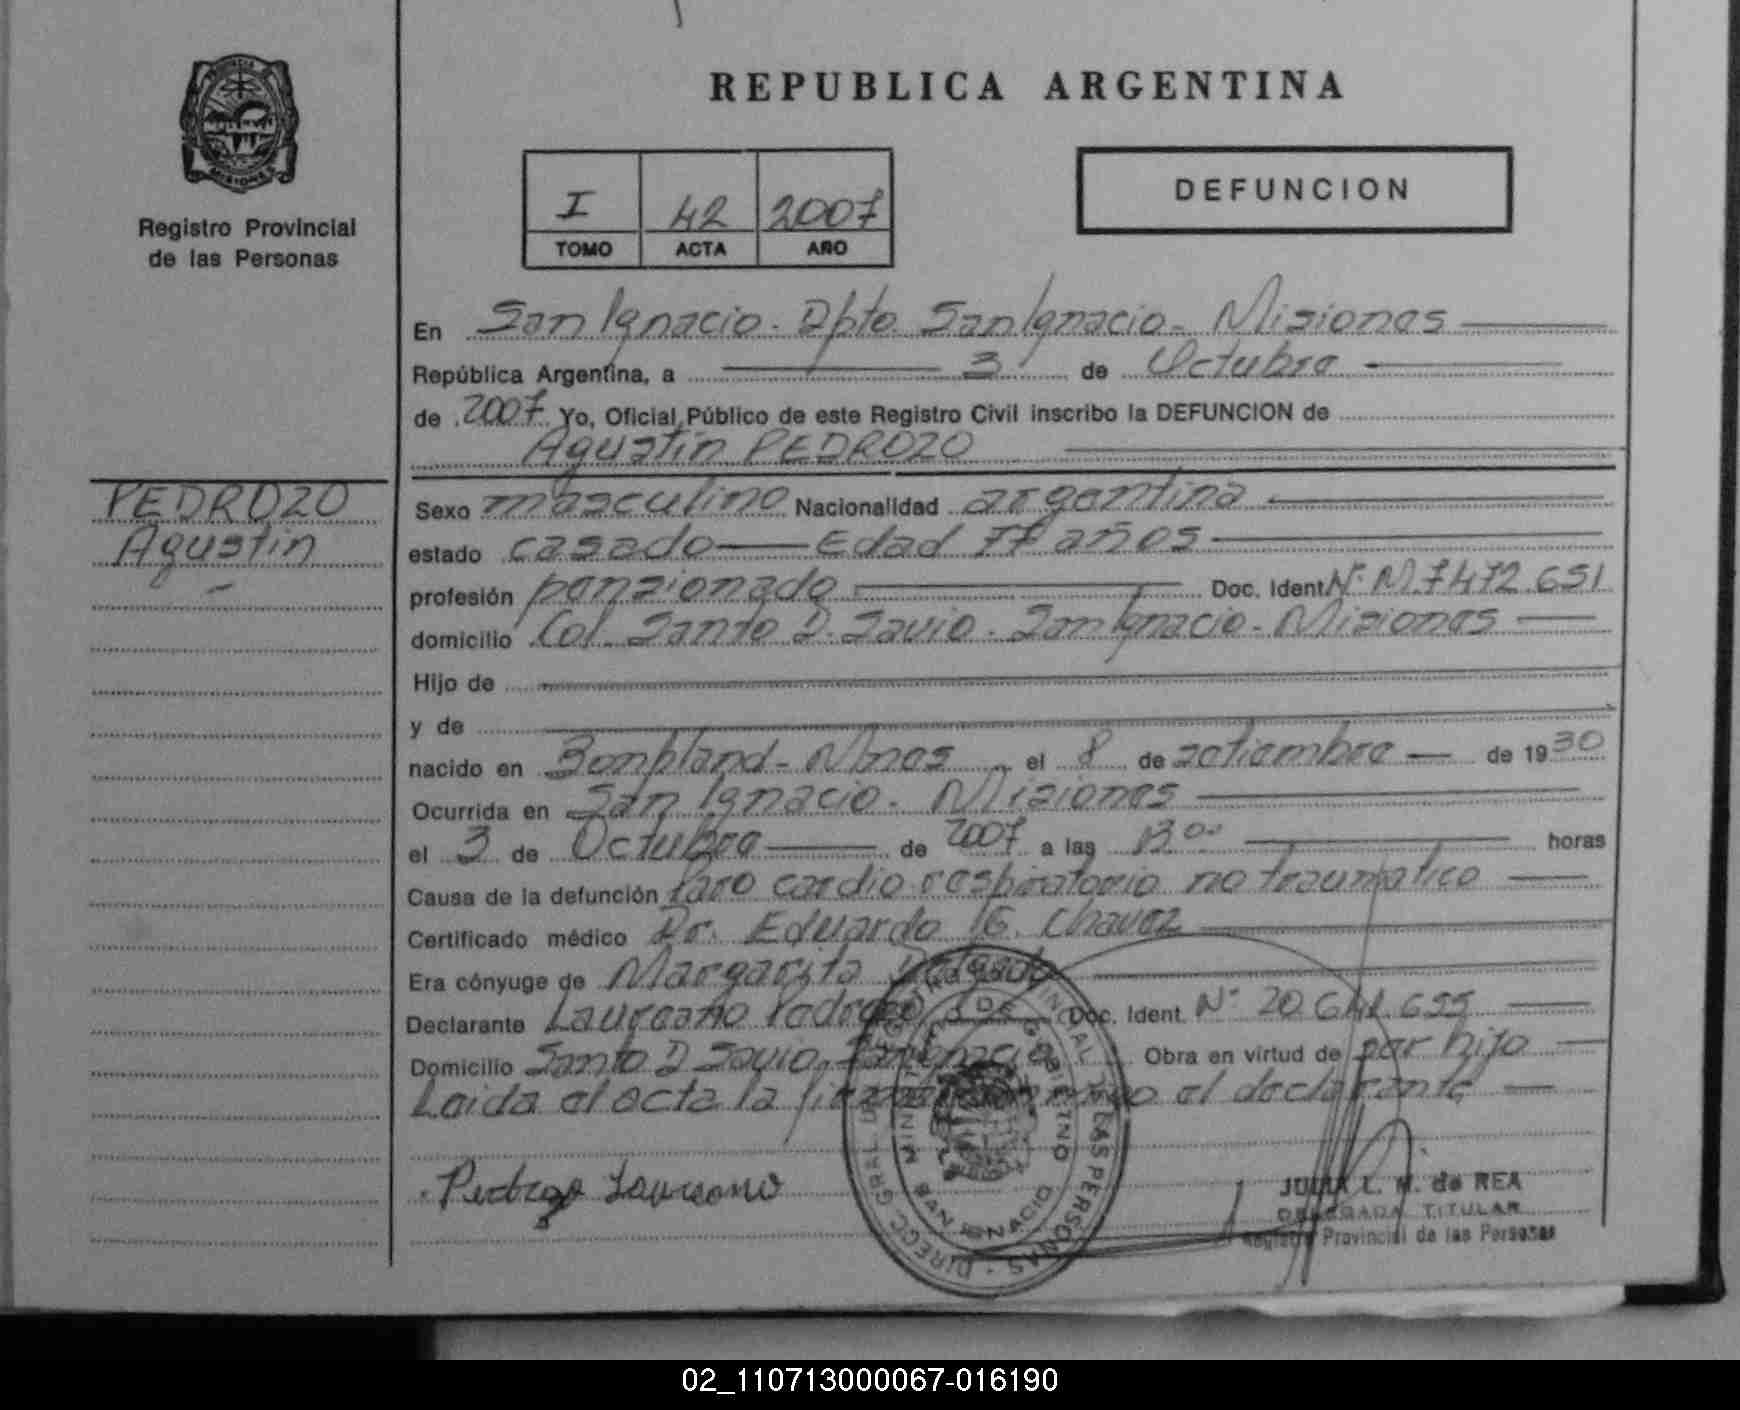 REPUBLICA ARGENTINA
PROVINCIA DE
MISIONES
Registro Provincial
de las Personas
I 42 2007
TOMO ACTA AÑO
DEFUNCION
En San Ignacio - Dpto San Ignacio - Misiones
República Argentina, a 3 de Octubre
de 2007 Yo, Oficial Público de este Registro Civil inscribo la DEFUNCION de
Agustín PEDROZO
PEDROZO
Agustín
Sexo masculino Nacionalidad argentina
estado casado Edad 77 años
profesión pensionado Doc. Ident. Nº M.7.472.651
domicilio Col. Santo D. Savio - San Ignacio - Misiones
Hijo de
y de
nacido en Bonpland - Mnes el 8 de setiembre de 1930
Ocurrida en San Ignacio - Misiones
el 3 de Octubre de 2007 a las 13 00 horas
Causa de la defunción Paro cardio respiratorio no traumatico
Certificado médico Dr. Eduardo G. Chavez
Era cónyuge de Margarita Delgado
Declarante Laureano Pedrozo Doc. Ident. Nº 20.641.655
Domicilio Santo D Savio. San Ignacio Obra en virtud de por hijo
Leida el acta la firma el declarante
Pedrozo Laureano
JULIA L. M. de REA
DELEGADA TITULAR
Registro Provincial de las Personas
DIRECC. GRAL. DEL REGISTRO PROVINCIAL DE LAS PERSONAS
MINIST. DE GOBIERNO
SAN IGNACIO
02_110713000067-016190